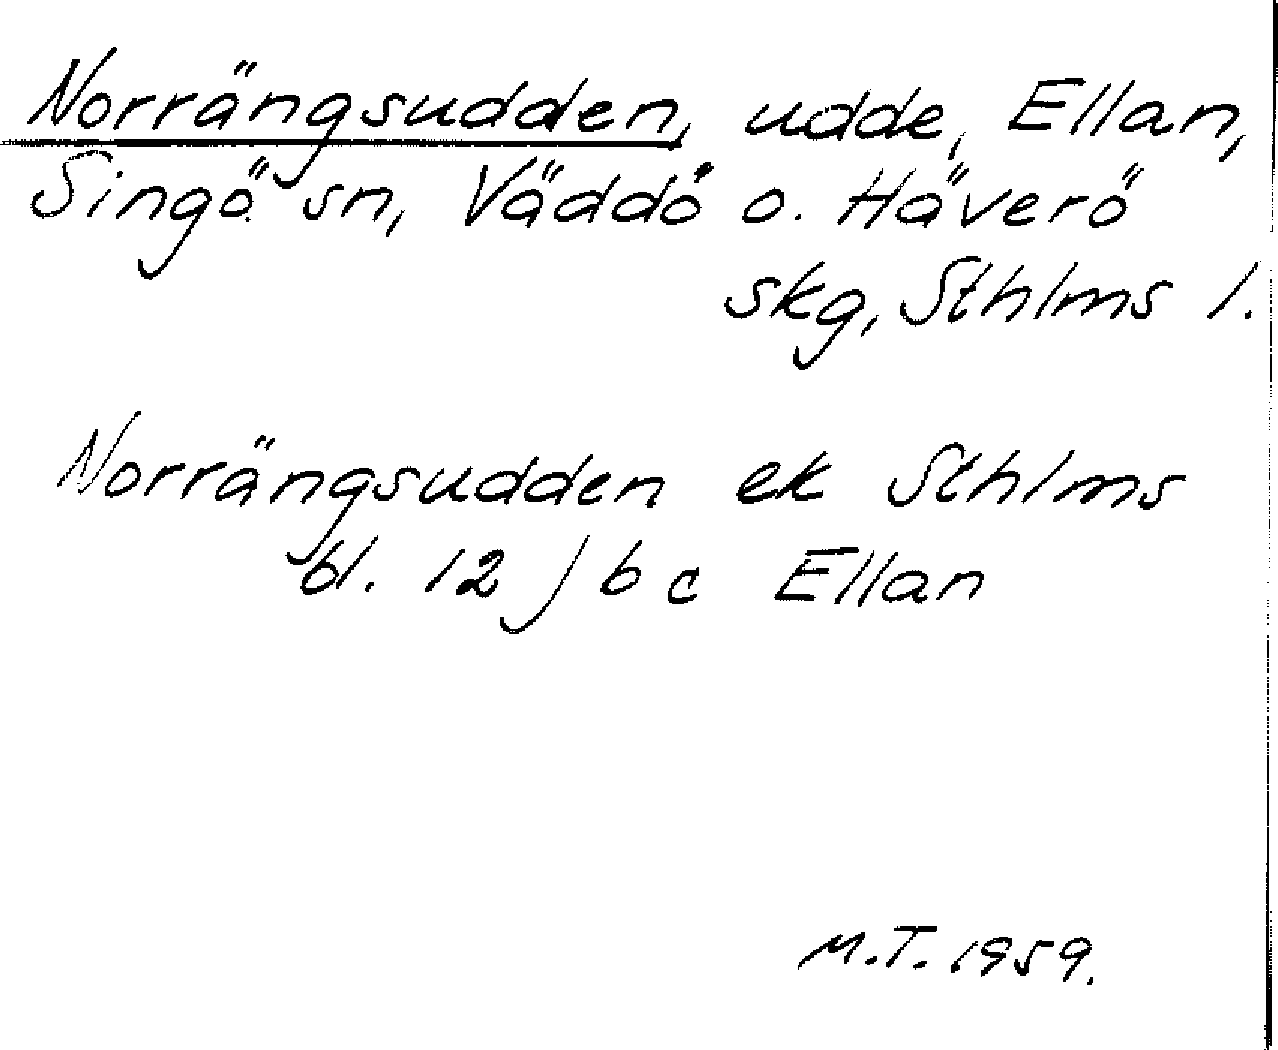 Norrängsudden, udde, Ellan,
Singö sn, Väddö o. Häverö
skg, Sthlms l.
Norrängsudden ek Sthlms
bl. 12 j b c Ellan
M.T. 1959.